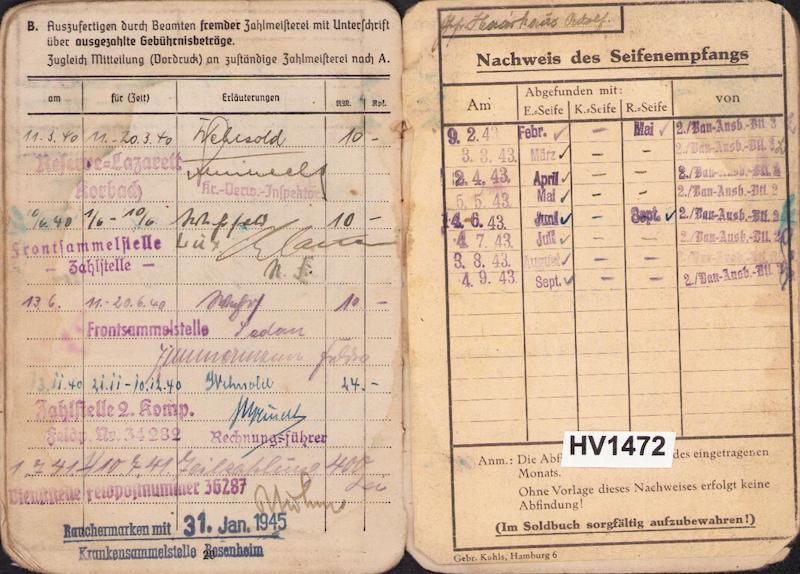 B. Auszufertigen durch Beamten fremder Zahlmeisterei mit Unterschrift
über ausgezahlte Gebührnisbeträge.
Zugleich Mitteilung (Vordruck) an zuständige Zahlmeisterei nach A.
am für (Zeit) Erläuterungen RM. Rpf.
11.3.40 11.-20.3.40 Wehrsold 10 -
Reserve-Lazarett
Korbach Kr.-Verw.-Inspektor
10/6.40 1/6 - 10/6 10 -
Frontsammelstelle
- Zahlstelle -
13.6. 11.-20.6.40 10 -
Frontsammelstelle Sedan
Zimmermann
21.11-10.12.40 Wehrsold 24.-
Zahlstelle 2. Komp.
Feldp. Nr. 34282 Rechnungsführer
1.7.41 10.7.41 Teilzahlung 400
Lei
Dienststelle Feldpostnummer 36287
Rauchermarken mit 31. Jan. 1945
Krankensammelstelle Rosenheim
20
Nachweis des Seifenempfangs
Am Abgefunden mit: von
E.-Seife K.-Seife R.-Seife
9. 2. 43. Febr. - Mai 2./Bau-Ausb.-Btl. 3
3. 3. 43. März - - 2./Bau-Ausb.-Btl.
2. 4. 43. April - - 2./Bau-Ausb.-Btl. 2
5. 5. 43. Mai - - 2./Bau-Ausb.-Btl. 2
4. 6. 43. Juni - Sept. 2./Bau-Ausb.-Btl. 2
4. 7. 43. Juli - - 2./Bau-Ausb.-Btl. 2
3. 8. 43. August - - 2./Bau-Ausb.-Btl.
4. 9. 43. Sept. - - 2./Bau-Ausb.-Btl.
HV1472
Anm.: Die Abfi des eingetragenen
Monats.
Ohne Vorlage dieses Nachweises erfolgt keine
Abfindung!
(Im Soldbuch sorgfältig aufzubewahren!)
Gebr. Kohls, Hamburg 6